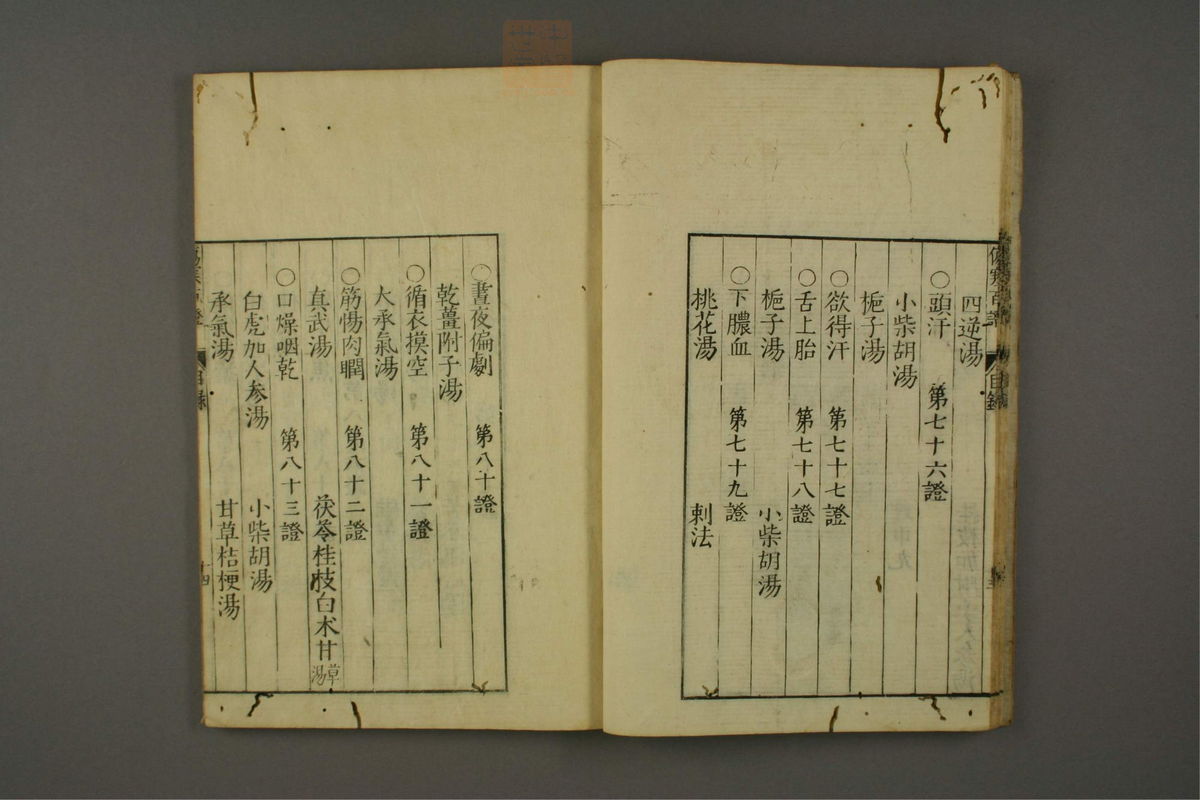 傷寒百證
目錄
四逆湯
〇頭汗 第七十六證
小柴胡湯
梔子湯
〇欲得汗 第七十七證
〇舌上胎 第七十八證
梔子湯 小柴胡湯
〇下膿血 第七十九證
桃花湯 刺法
〇晝夜偏劇 第八十證
乾薑附子湯
〇循衣摸空 第八十一證
大承氣湯
〇筋惕肉瞤 第八十二證
真武湯 茯苓桂枝白术甘草湯
〇口燥咽乾 第八十三證
白虎加人参湯 小柴胡湯
承氣湯 甘草桔梗湯
目錄
十四